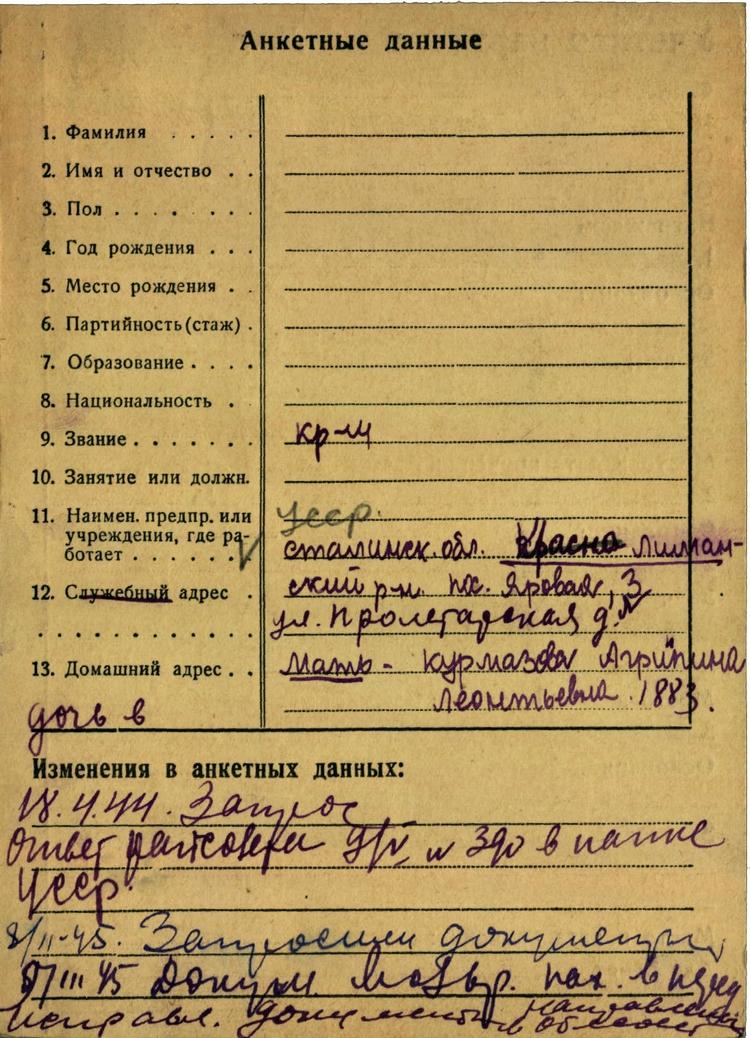 Анкетные данные
1. Фамилия . . . . .
2. Имя и отчество . .
3. Пол . . . . . . .
4. Год рождения . . .
5. Место рождения . .
6. Партийность (стаж) .
7. Образование . . . .
8. Национальность .
9. Звание . . . . . . . кр-ц
10. Занятие или должн.
11. Наимен. предпр. или УССР.
учреждения, где ра-
ботает . . . . . . Сталинск. обл. Красно Лиман-
12. Служебный адрес . ский р-н. пос. Яровая, 3
ул. Пролетарская д.
13. Домашний адрес . . Мать - Курмазова Агрипина
дочь в Леонтьевна. 1883.
Изменения в анкетных данных:
18.4.44. Запрос
Ответ райсовета 9/V № 390 в папке
УССР.
8/II-45. Запросили документы
8/III 45 Докум.
исправл. документы